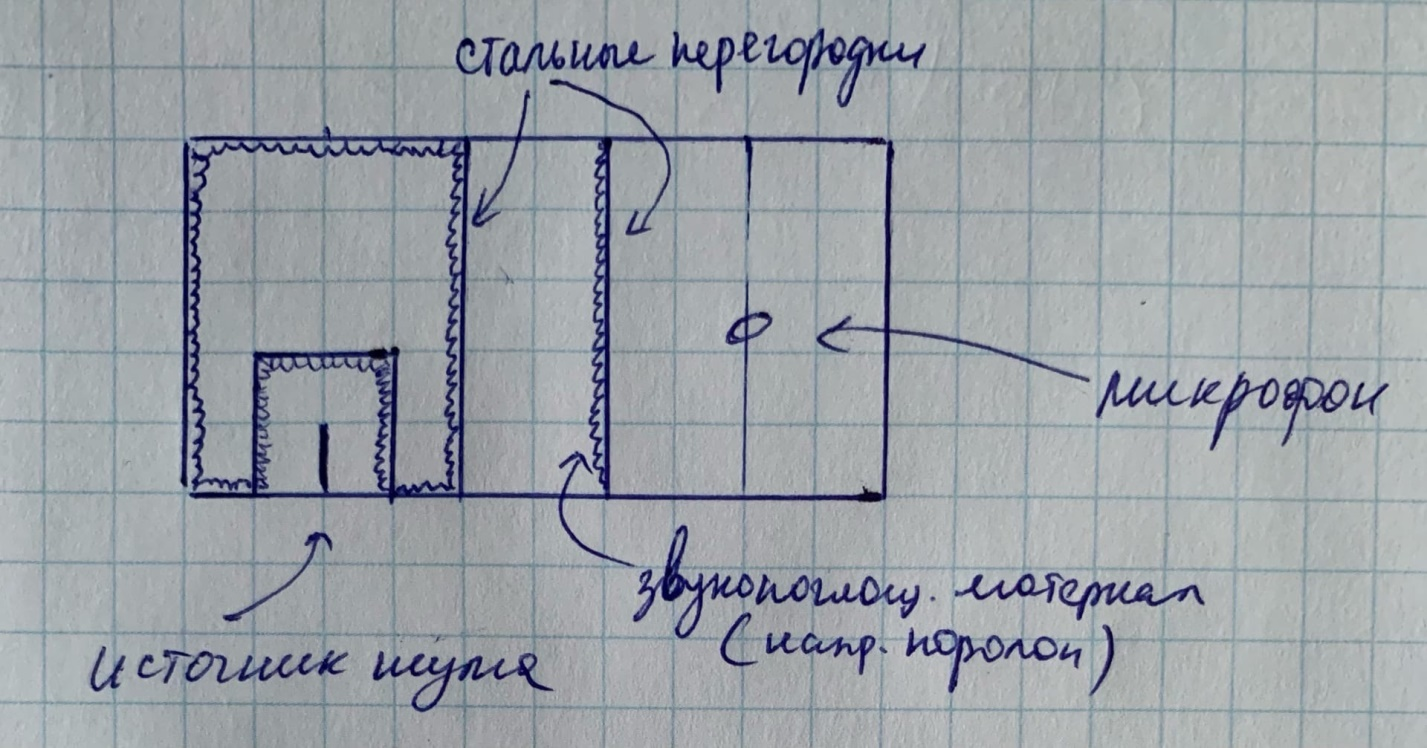 стальные перегородки
микрофон
звукопоглощ. материал
(напр. поролон)
источник шума